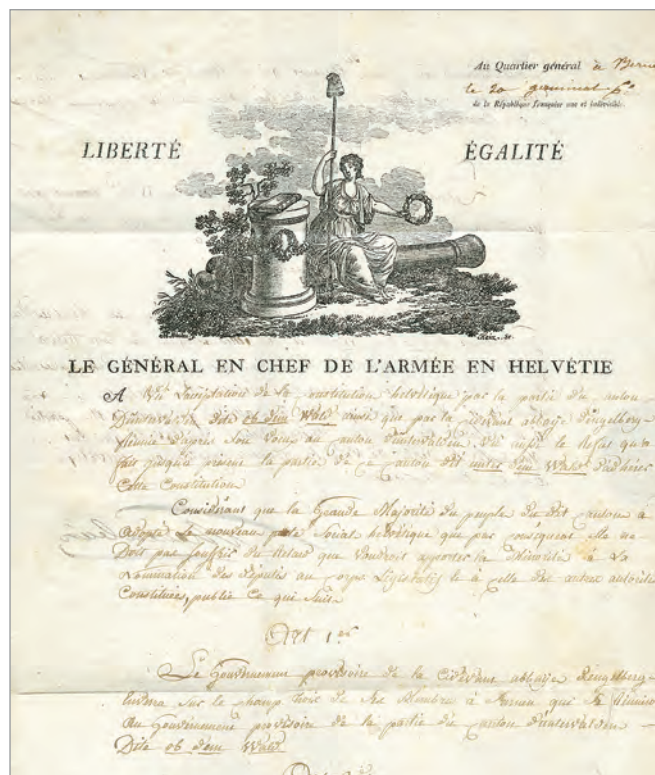 Au Quartier général à Berne
le 20 germinal 6e
de la République française une et indivisible.
LIBERTÉ ÉGALITÉ
LE GÉNÉRAL EN CHEF DE L'ARMÉE EN HELVÉTIE
A Vû l'acceptation de la constitution helvétique par la partie du canton
D'unterwalden dite ob dem Wald ainsi que par la cidevant abbaye d'engelberg
réunie d'après son voeu au canton d'unterwalden. Vû enfin le refus qu'a
fait jusqu'à présent la partie de ce canton dit unter dem Wald d'adhérer
Cette Constitution
Considérant que la Grande Majorité du peuple du dit canton à
adopté le nouveau pacte Social helvétique que par conséquent elle ne
Doit pas souffrir du retard que voudroit apporter la Minorité à la
Nomination des députés au corps Législatif et à celle des autres autorités
Constituées, publie Ce qui Suit.
Art 1er
Le Gouvernement provisoire de la Cidevant abbaye d'engelberg
Enverra sur le champ trois de ses Membres à Sarnen qui se réuniront
au Gouvernement provisoire de la partie du canton d'unterwalden
Dite ob dem Wald